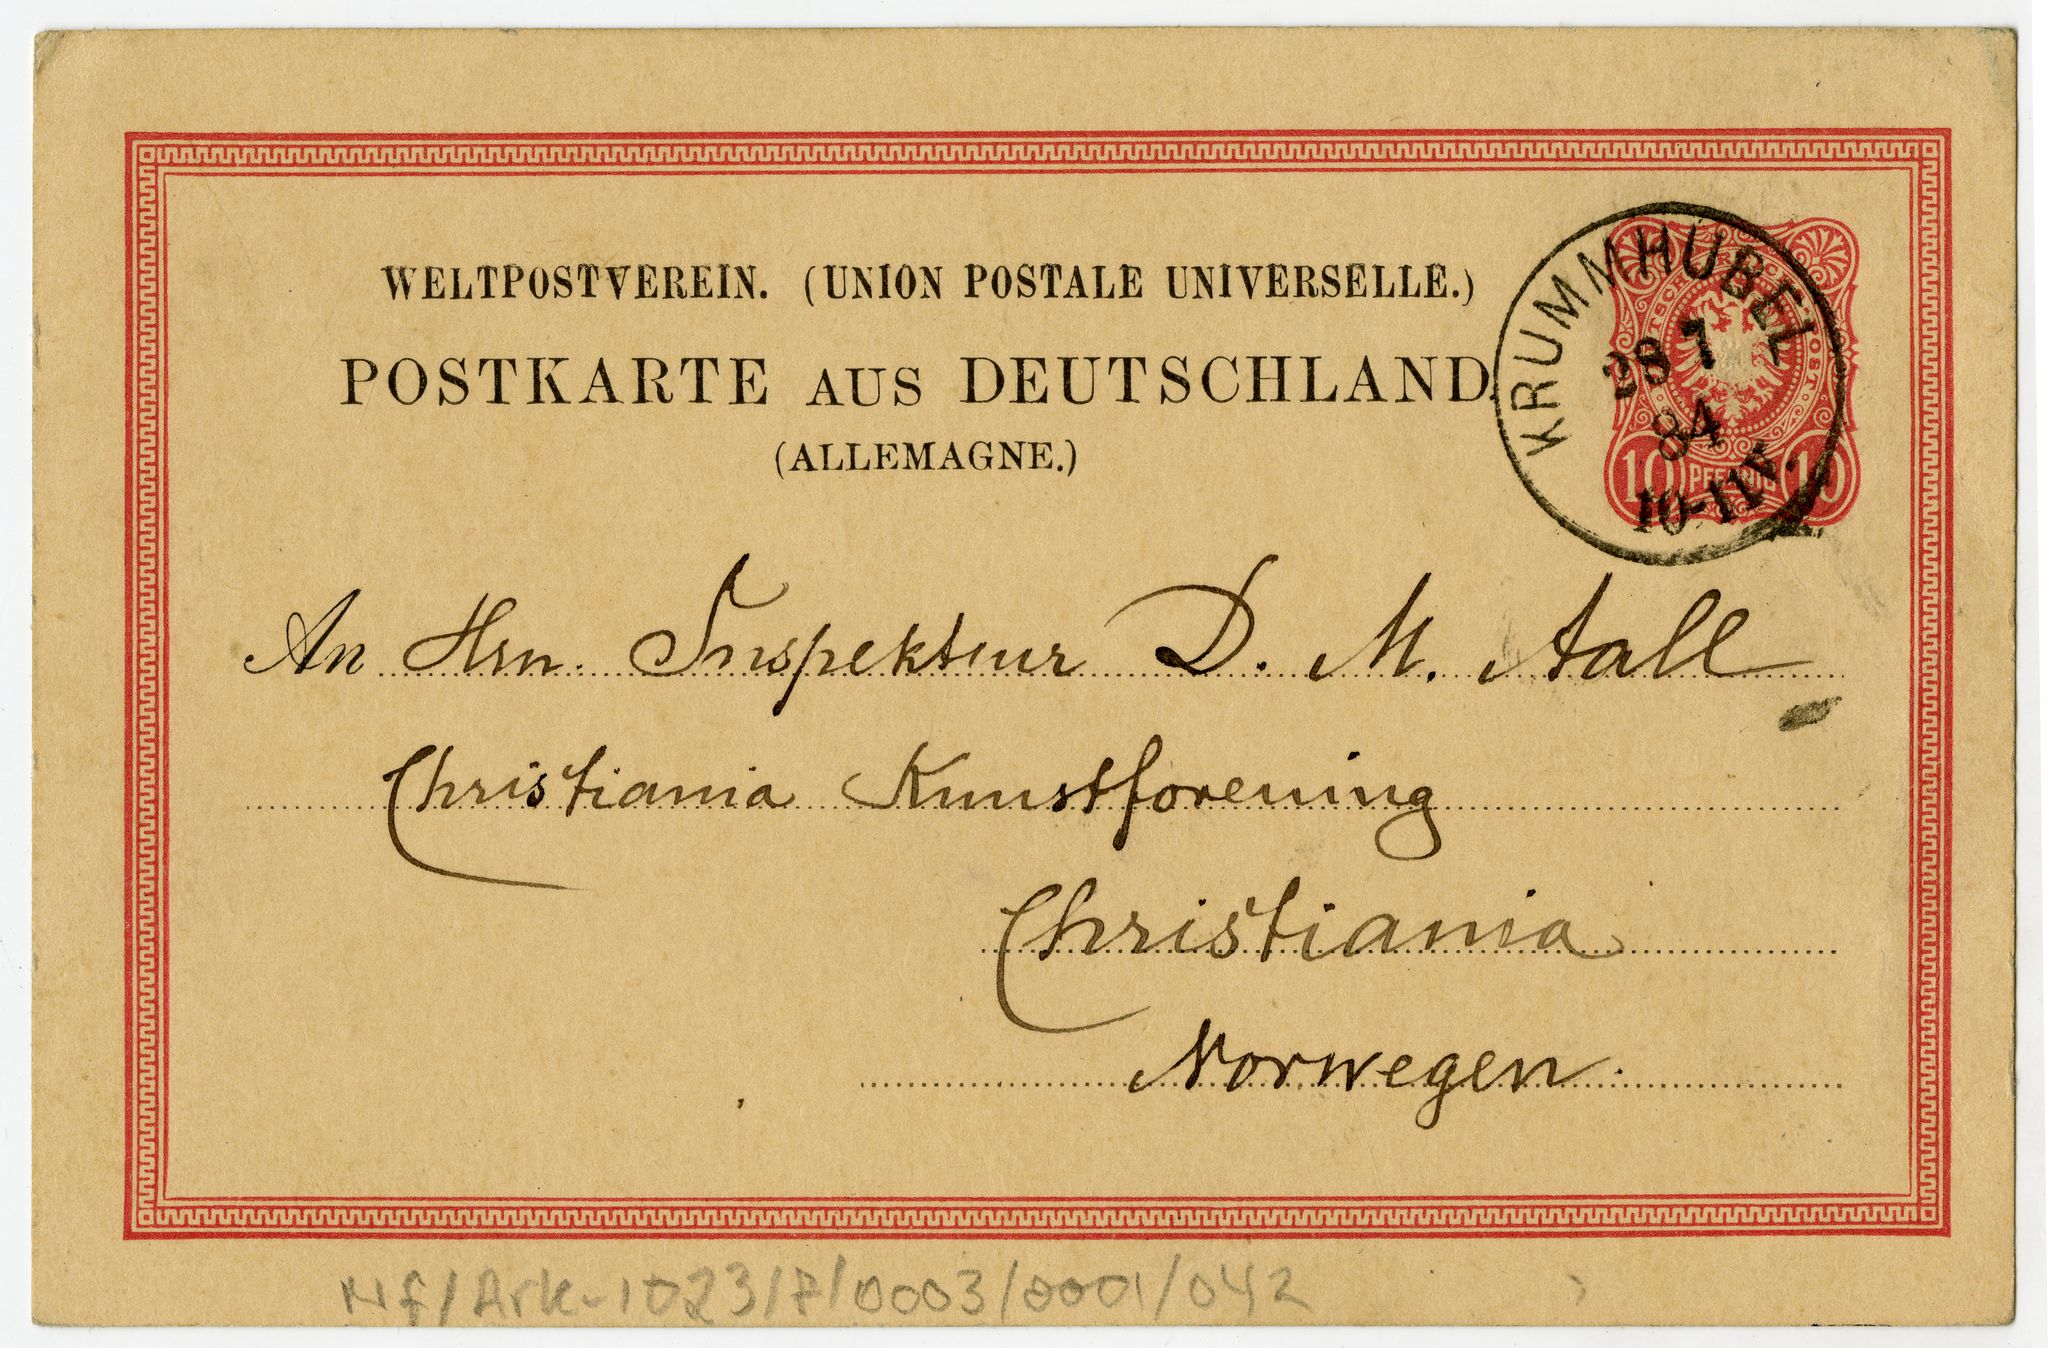 WELTPOSTVEREIN. (UNION POSTALE UNIVERSELLE.)
POSTKARTE AUS DEUTSCHLAND.
(ALLEMAGNE.)
KRUMMHÜBEL
28 7
84
10-11V.
10 PFENNIG 10
An Hrn. Inspekteur D. M. Aall
Christiania Kunstforening
Christiania
Norwegen.
NF/Ark-1023/F/0003/0001/042